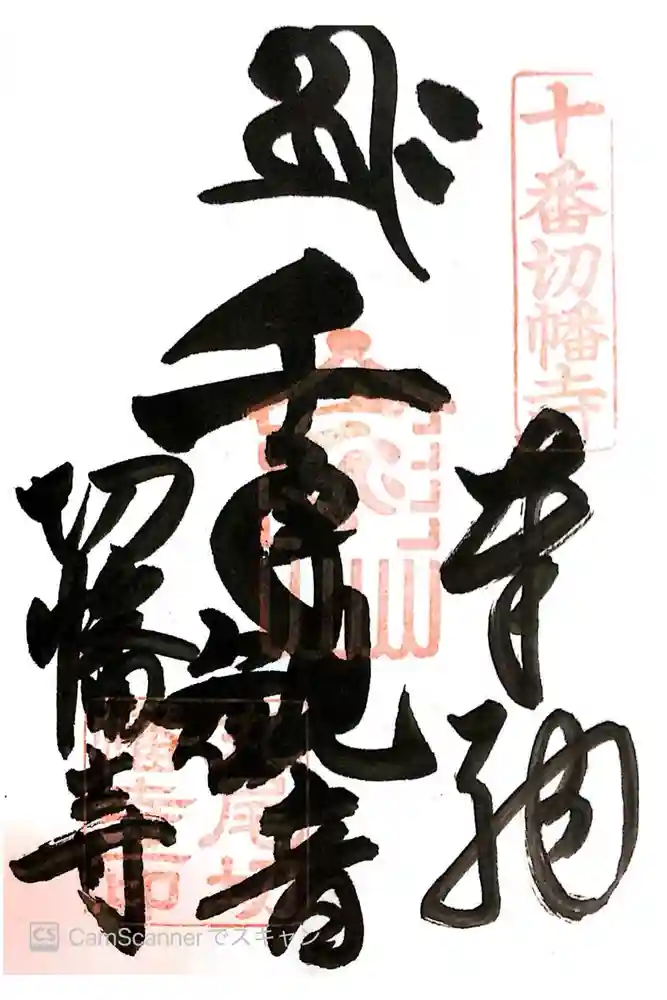 十番切幡寺
奉納
千手観音
切幡寺
CS CamScanner でスキャン